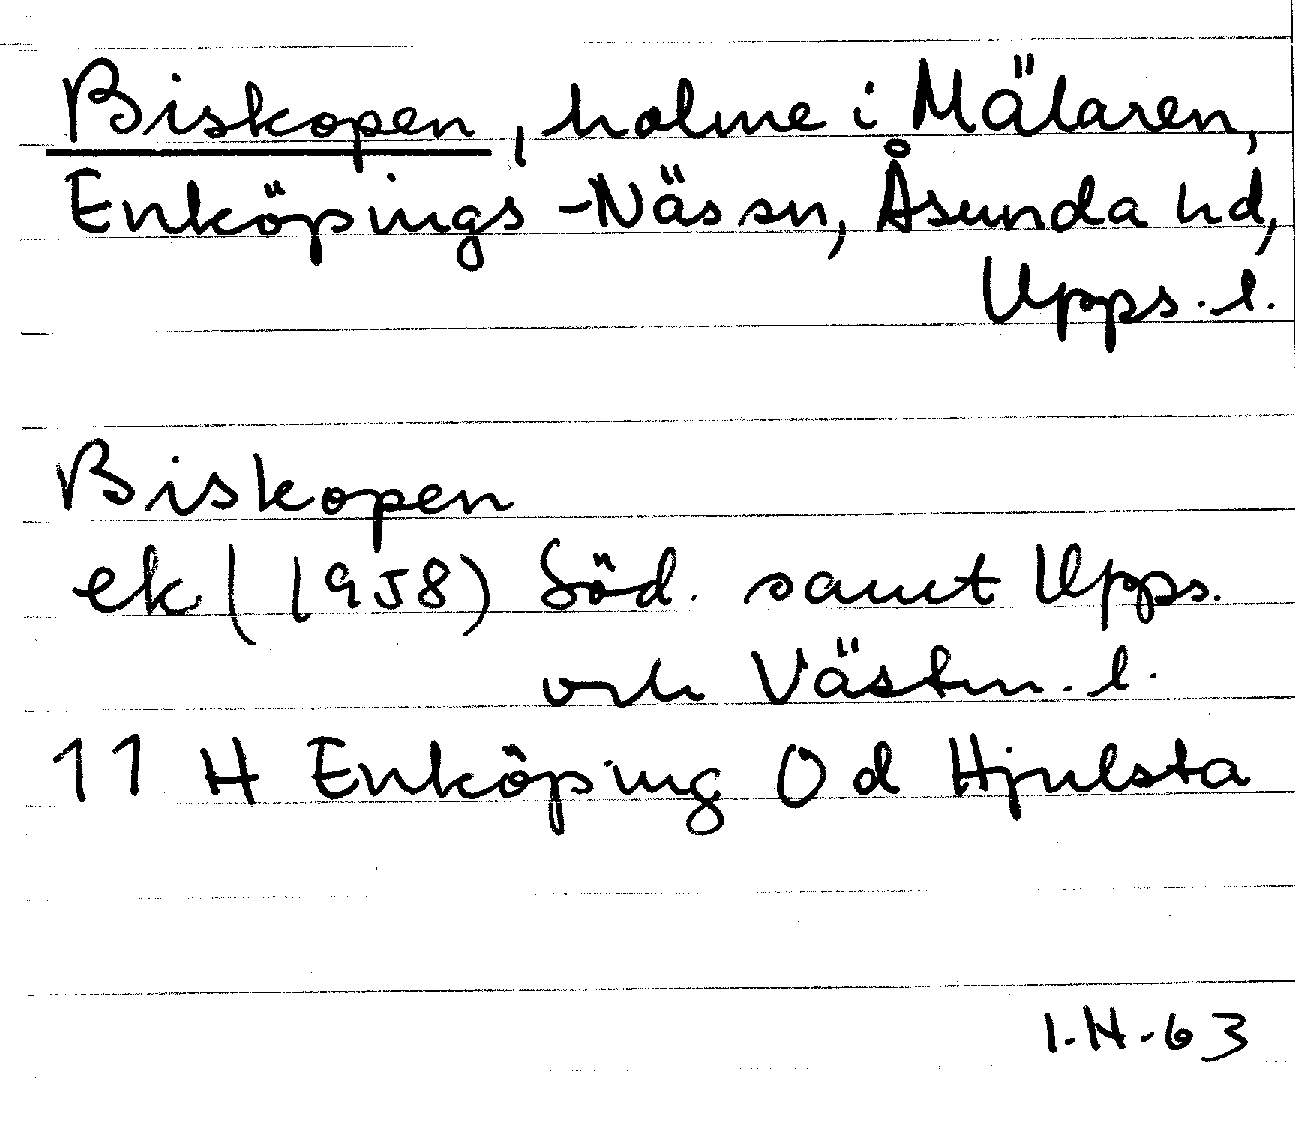 Biskopen, holme i Mälaren,
Enköpings-Näs sn, Åsunda hd,
Upps. l.
Biskopen
ek (1958) Söd. samt Upps.
och Västm. l.
11 H Enköping Od Hjulsta
I.H.63